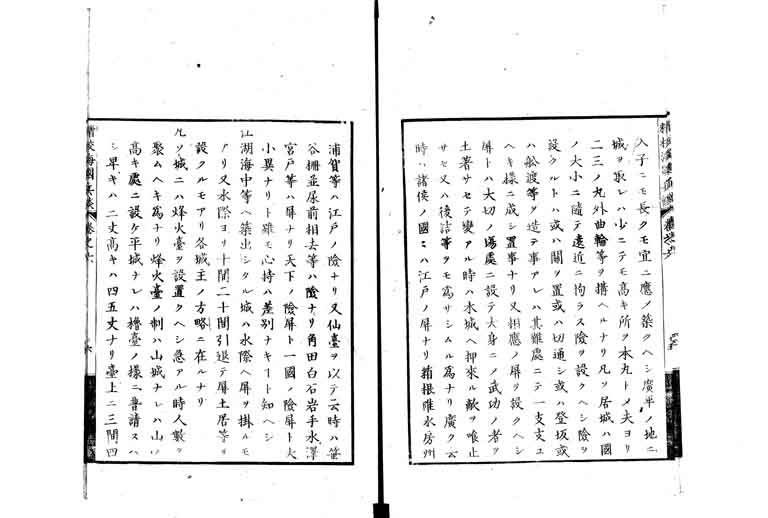 入子ニモ長クモ宜ニ應ノ築クヘシ廣平ノ地ニ
城ヲ取レハ少ニテモ高キ所ヲ本丸トメ夫ヨリ
二三ノ丸外曲輪等ヲ搆ヘルナリ凡ソ居城ハ國
ノ大小ニ隨テ遠近ニ拘ラス險ヲ設クヘシ險ヲ
設クルト ハ或ハ關ヲ置或ハ切通シ或ハ登坂或
ハ舩渡等ヲ造テ事アレハ其難處ニテ一支支ユ
ヘキ樣ニ成シ置事ナリ又相應ノ屏ヲ設クヘシ
屏トハ大切ノ場處ニ設テ大身ニノ武功ノ者ヲ
土著サセテ變アル時ハ本城ヘ押來ル敵ヲ喰止
サセ又ハ後詰等ヲモ爲サシムル爲ナリ廣ク云
時ハ諸侯ノ國ニハ江戸ノ屏ナリ箱根碓水房州
浦賀等ハ江戸ノ險ナリ又仙臺ヲ以テ云時ハ笹
谷柵並尿前相去等ハ險ナリ角田白石岩手水澤
宮戸等ハ屏ナリ天下ノ險屏ト一國ノ險屏ト大
小異ナリト雖モ心持ハ差別ナキート知ヘシ
江湖海中等ヘ築出シタル城ハ水際ヘ屏ヲ掛ルモ
アリ又水際ヨリ十間二十間引退テ屏土居等ヲ
設クルモアリ各城主ノ方略ニ在ルナリ
凡ソ城ニハ烽火臺ヲ設置クヘシ急アル時人數ヲ
聚ムヘキ爲ナリ烽火臺ノ制ハ山城ナレハ山ノ
高キ處ニ設ケ平城ナレハ櫓臺ノ樣ニ普請スヘ
シ早キハ二丈高キハ四五丈ナリ臺上ニ三間四
精校海國兵談
卷之六
六